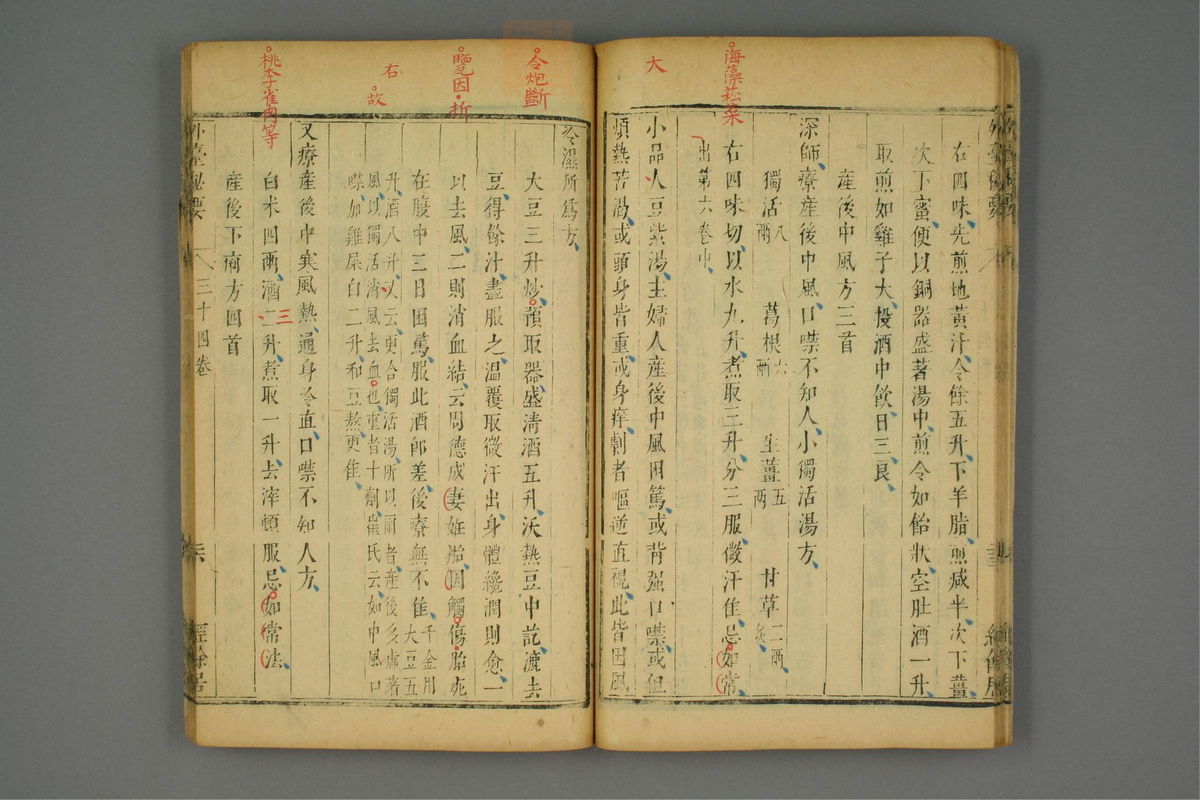 海藻菘菜
大
右四味先煎地黃汁令餘五升下羊脂煎減半次下薑
次下蜜便以銅器盛著湯中煎令如飴狀空肚酒一升
取煎如雞子大投酒中飲日三良
產後中風方三首
深師療產後中風口噤不知人小獨活湯方
獨活八兩 葛根六兩 生薑五兩 甘草二兩炙
右四味切以水九升煮取三升分三服微汗佳忌如常
出第六卷中
小品人豆紫湯主婦人產後中風困篤或背强口噤或但
煩熱苦渴或頭身皆重或身痒劇者嘔逆直視此皆因風
令炮斷
蹷因折
右
故
桃李雀肉等
冷濕所爲方
大豆三升炒預取器盛清酒五升沃熱豆中訖漉去
豆得餘汁盡服之溫覆取微汗出身體纔潤則愈一
以去風二則消血結云周德成妻妊胎因觸傷胎死
在腹中三日困篤服此酒郎差後療無不佳千金用大豆五
升酒八升又云更合獨活湯所以爾者產後多虛著
風以獨活消風去血也重者十劑崔氏云如中風口
噤加雞屎白二升和豆熬更佳
又療產後中寒風熱通身冷直口噤不知人方
白朮四兩酒二升煮取一升去滓頓服忌如常法
三
產後下痢方四首
外臺秘要
三十四卷
經餘居